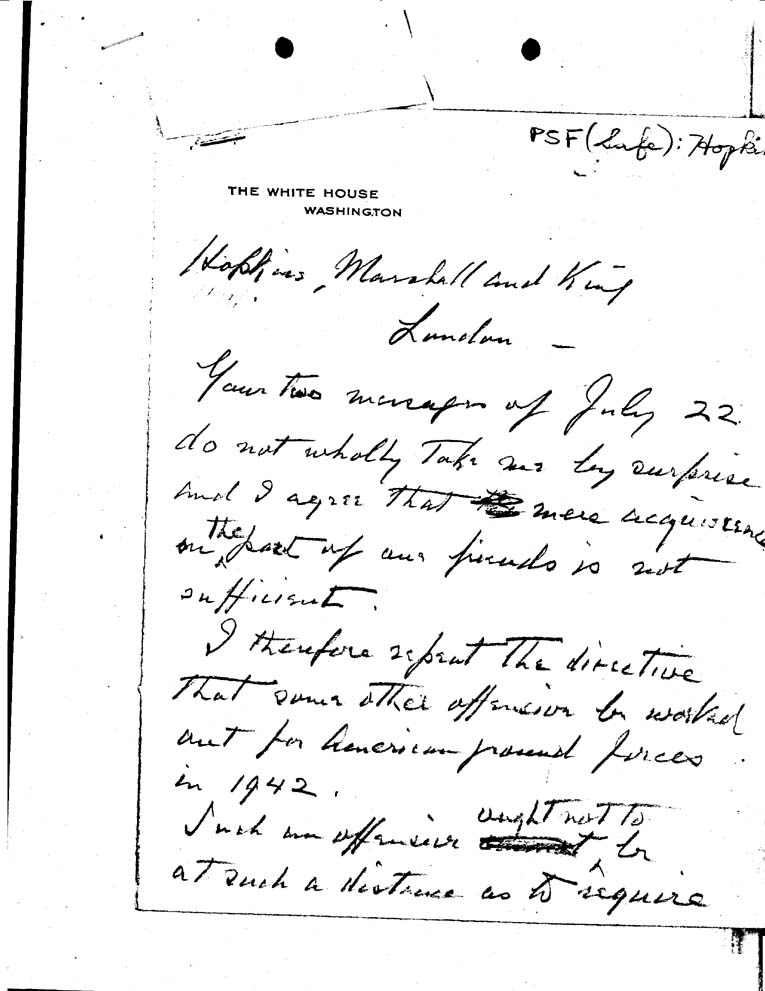 PSF(Safe): Hopki
THE WHITE HOUSE
WASHINGTON
Hopkins, Marshall and King
London —
Your two messages of July 22
do not wholly take me by surprise
and I agree that mere acquiescence
on the part of our friends is not
sufficient.
I therefore repeat the directive
that some other offensive be worked
out for American ground forces
in 1942.
Such an offensive ought not to be
at such a distance as to require